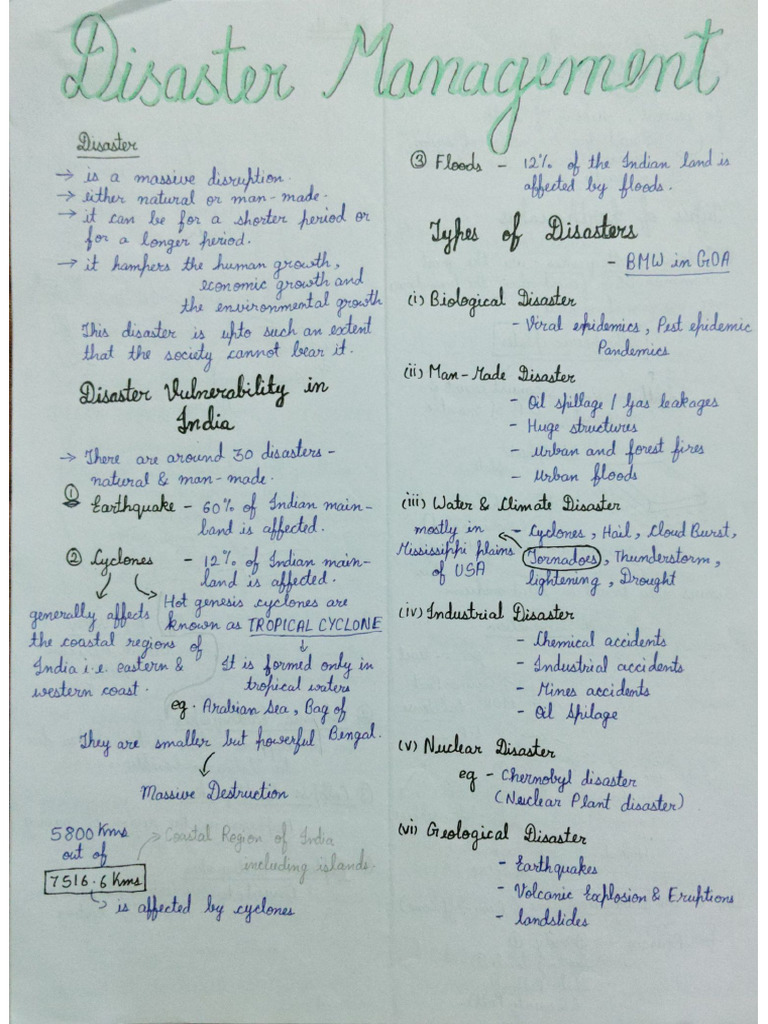 Disaster Management
Disaster
→ is a massive disruption.
→ either natural or man-made.
→ it can be for a shorter period or
for a longer period.
→ it hampers the human growth,
economic growth and
the environmental growth
This disaster is upto such an extent
that the society cannot bear it.
Disaster Vulnerability in
India
→ There are around 30 disasters -
natural & man-made.
① Earthquake - 60% of Indian main-
land is affected.
② Cyclones - 12% of Indian main-
land is affected.
generally affects
the coastal regions of
India i.e. eastern &
western coast.
Hot genesis cyclones are
known as TROPICAL CYCLONE
It is formed only in
tropical waters
eg. Arabian Sea, Bag of
Bengal.
They are smaller but powerful
Massive Destruction
5800 Kms
out of
7516.6 Kms
→ Coastal Region of India
including islands.
→ is affected by cyclones
③ Floods - 12% of the Indian land is
affected by floods.
Types of Disasters
- BMW in GOA
(i) Biological Disaster
- Viral epidemics, Pest epidemic
Pandemics
(ii) Man-Made Disaster
- Oil spillage / Gas leakages
- Huge structures
- Urban and forest fires
- Urban floods
(iii) Water & Climate Disaster
- Cyclones, Hail, Cloud Burst,
Tornadoes, Thunderstorm,
lightening, Drought
mostly in
Mississippi plains
of USA
(iv) Industrial Disaster
- Chemical accidents
- Industrial accidents
- Mines accidents
- Oil Spilage
(v) Nuclear Disaster
eg - Chernobyl disaster
(Nuclear Plant disaster)
(vi) Geological Disaster
- Earthquakes
- Volcanic Explosion & Eruptions
- landslides